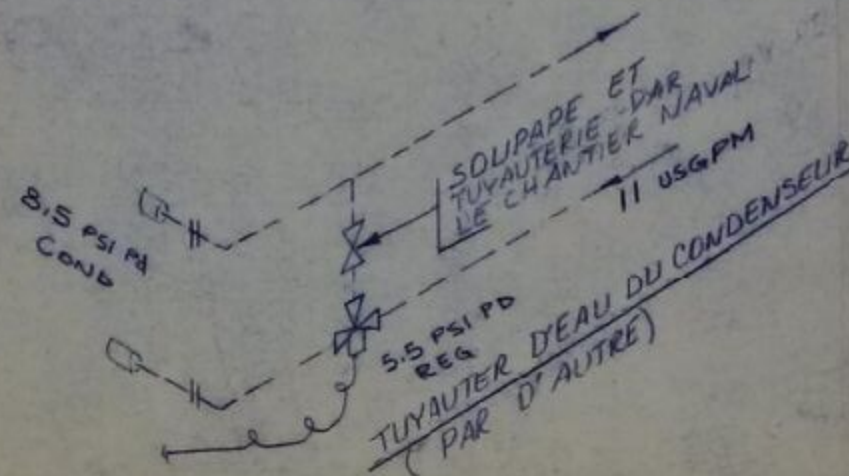 SOUPAPE ET
TUYAUTERIE PAR
LE CHANTIER NAVAL
11 USGPM
8.5 PSI Pd
COND
5.5 PSI PD
REG
TUYAUTER D'EAU DU CONDENSEUR
(PAR D'AUTRE)